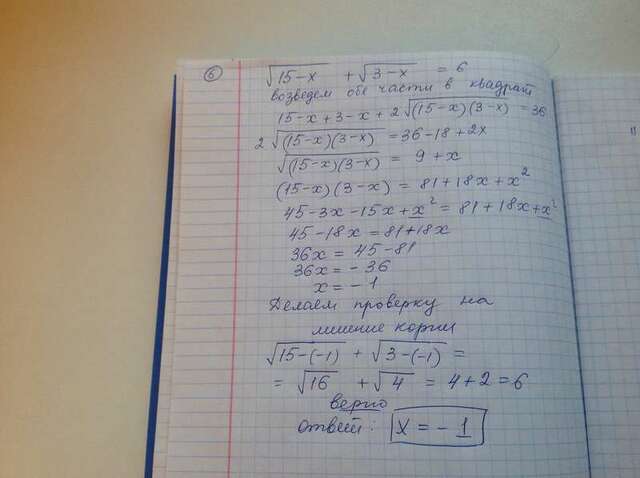 6
√15-x + √3-x = 6
возведем обе части в квадрат
15-x+3-x+2√(15-x)(3-x) = 36
2√(15-x)(3-x) = 36-18+2x
√(15-x)(3-x) = 9+x
(15-x)(3-x) = 81+18x+x²
45-3x-15x+x² = 81+18x+x²
45-18x = 81+18x
36x = 45-81
36x = -36
x = -1
Делаем проверку на
лишние корни
√15-(-1) + √3-(-1) =
= √16 + √4 = 4+2=6
верно
ответ: x = -1